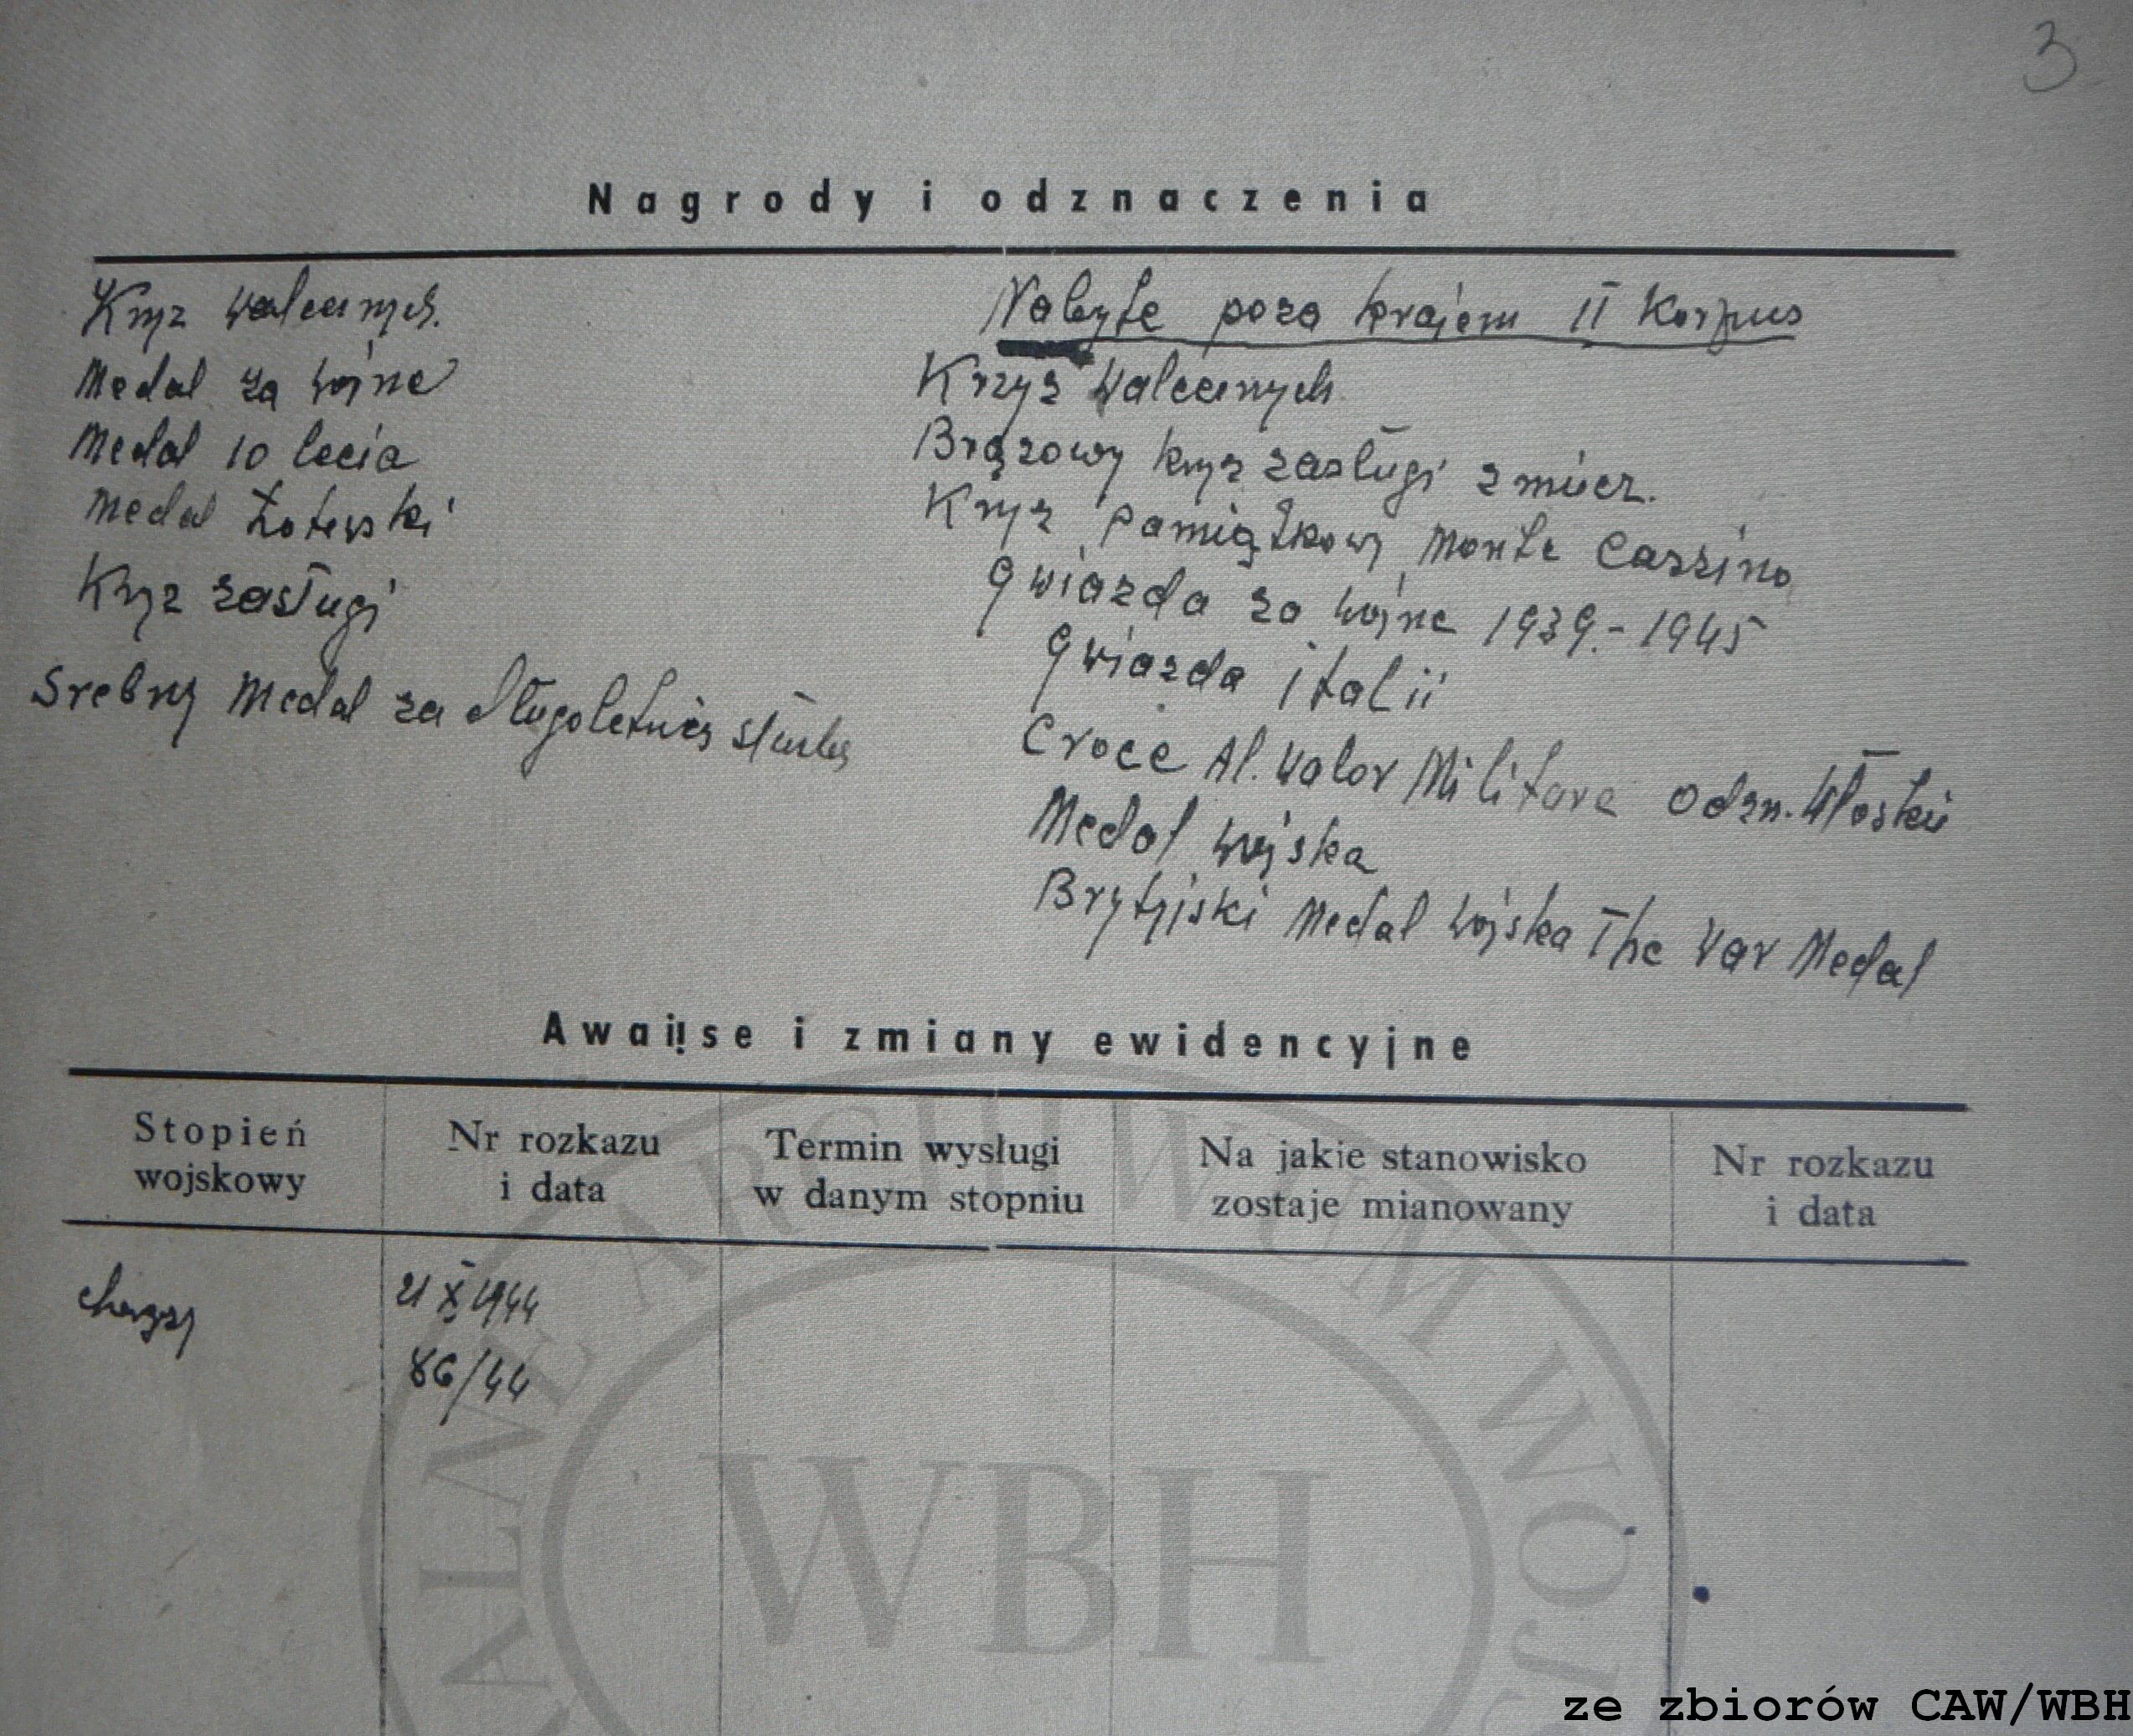 3
Nagrody i odznaczenia
Krzyż Walecznych.
Medal za wojnę
Medal 10 lecia
Medal Łotewski
Krzyż zasługi
Srebrny Medal za długoletnią służbę
Nabyte poza krajem II Korpus
Krzyż Walecznych
Brązowy krzyż zasługi z miecz.
Krzyż Pamiątkowy Monte Cassino
Gwiazda za wojnę 1939.-1945
Gwiazda italii
Croce Al. Valor Militare odzn. Włoskie
Medal wojska
Brytyjski Medal wojska The War Medal
Awanse i zmiany ewidencyjne
Stopień wojskowy
Nr rozkazu i data
Termin wysługi w danym stopniu
Na jakie stanowisko zostaje mianowany
Nr rozkazu i data
chorąży
21 X 1944
86/44
ALNE ARCHIWUM WOJ
WBH
ze zbiorów CAW/WBH